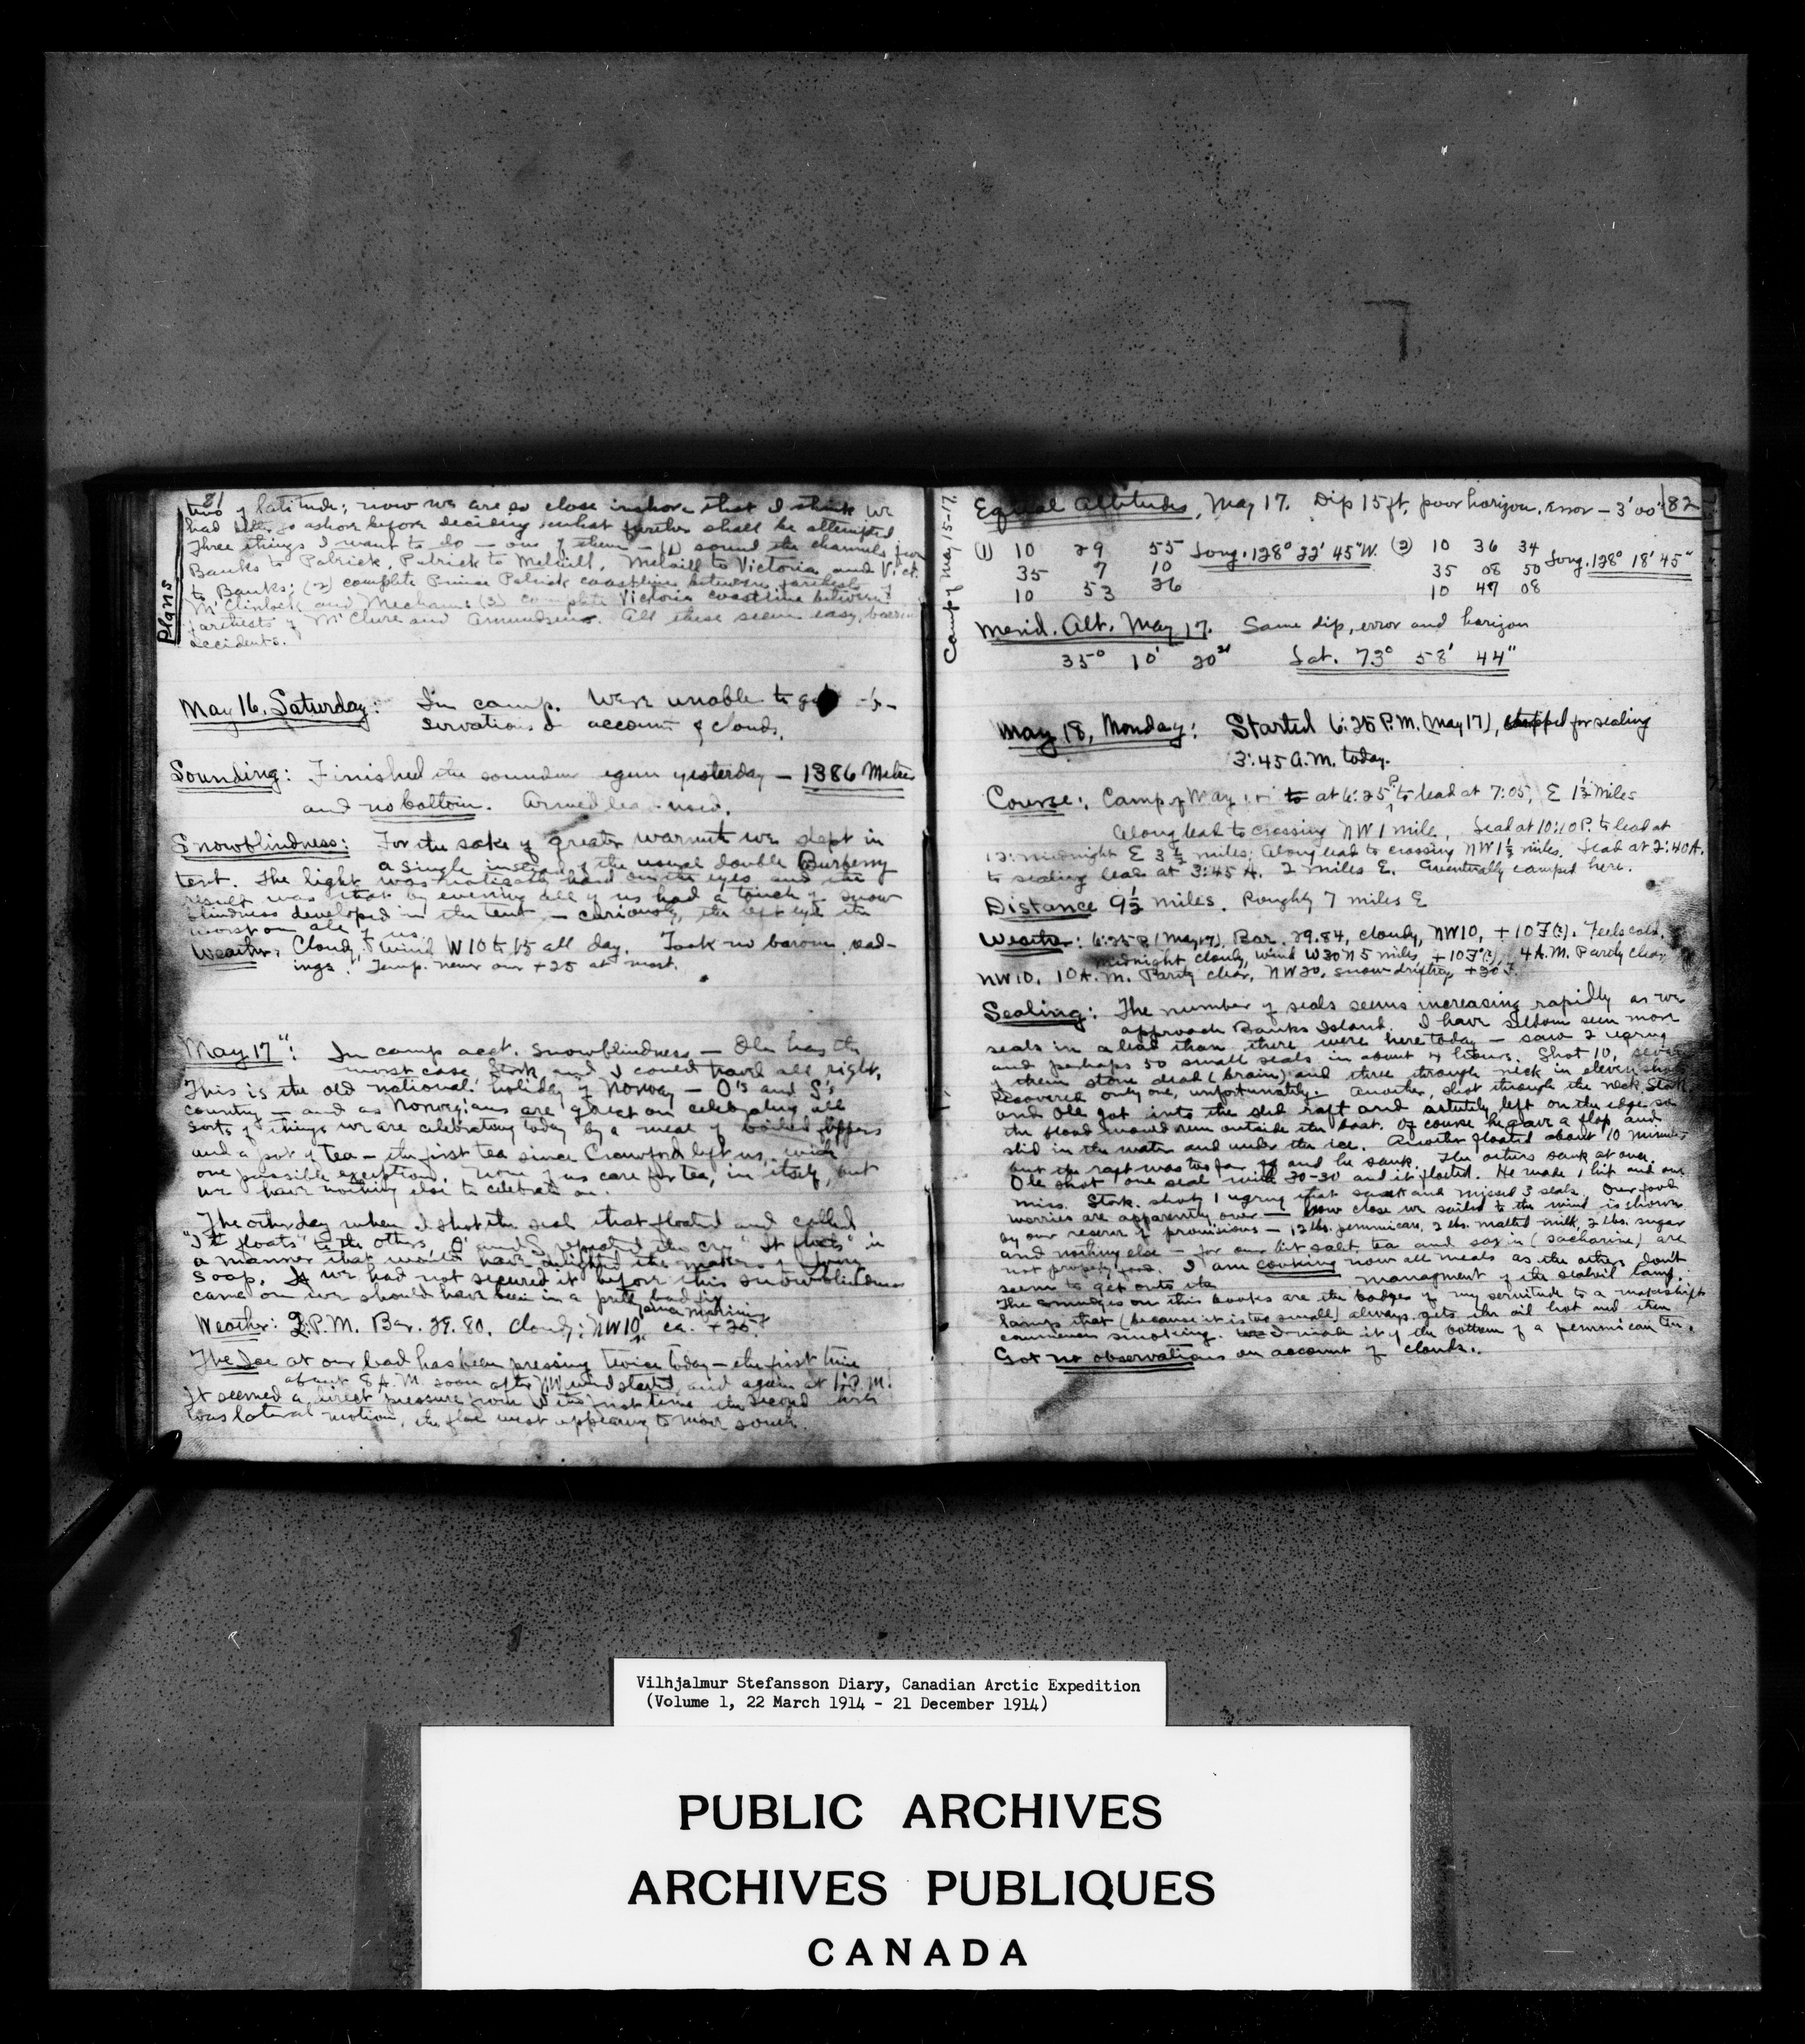 81
two of latitude; now we are so close inshore that I think we
had better go ashore before deciding what further shall be attempted
Three things I want to do — one of them — (1) sound the channels from
Banks to Patrick, Patrick to Melvill, Melvill to Victoria and Vict.
to Banks; (2) complete Prince Patrick coastline between farthests of
McClintock and Mecham; (3) complete Victoria coastline between
farthests of McClure and Amundsen. All these seem easy, barring
accidents.
Plans
May 16, Saturday: In camp. Were unable to get ob-
servations on account of clouds.
Sounding: Finished the sounding begun yesterday — 1386 Metres
and no bottom. Armed lead used.
Snowblindness: For the sake of greater warmth we slept in
a single instead of the usual double Burberry
tent. The light was noticeably hard on the eyes and the
result was that by evening all of us had a touch of snow
blindness developed in the tent — curiously, the left eye the
worst on all of us.
Weather: Cloudy, wind W 10 to 15 all day. Took no barom. read-
ings. Temp. never over +25 at most.
May 17": In camp acct. snowblindness — Ole has the
worst case. Stork. and I could travel all right.
This is the old national holiday of Norway — O's and S's
country — and as Norwegians are great on celebrating all
sorts of things we are celebrating today by a meal of boiled flippers
and a pot of tea — the first tea since Crawford left us, with
one possible exception. None of us care for tea, in itself, but
we have nothing else to celebrate on.
The other day when I shot the seal that floated and called
"It floats" to the others, O' and S. repeated the cry "It floats" in
a manner that would have delighted the makers of Ivory
Soap. If we had not secured it before this snowblindness
came on we should have been in a pretty bad fix
Weather: 2 P.M. Bar. 29.80. Cloudy; NW 10 since morning, ca. +25.
The Ice at our lead has been pressing twice today — the first time
about 8 A.M. soon after NW wind started, and again at 1 P.M.
It seemed a direct pressure from W the first time the second time
was lateral motion, the floe west appearing to move south.
Camp of May 15-17.
Equal Altitudes, May 17. Dip 15 ft, poor horizon. Error — 3' 00" 82
(1) 10 29 55 Long. 128° 22' 45" W. (2) 10 36 34 Long. 128° 18' 45"
35 7 10 35 08 50
10 53 26 10 47 08
Merid. Alt. May 17. Same dip, error and horizon
35° 10' 20" Lat. 73° 58' 44"
May 18, Monday: Started 6:25 P.M. (May 17), stopped for sealing
3:45 A.M. today.
Course: Camp of May to at 6:25 P. to lead at 7:05, E 1½ miles
Along lead to crossing NW 1 mile. Lead at 10:10 P. to lead at
12: midnight E 3½ miles; Along lead to crossing NW 1½ miles. Lead at 2:40 A.
to sealing lead at 3:45 A. 2 miles E. Eventually camped here.
Distance 9½ miles. Roughly 7 miles E
Weather: 6:25 P. (May 17), Bar. 29.84, cloudy, NW 10, +10 F(?). Feels cold.
Midnight cloudy, wind W30N 5 miles, +10 F(?), 4 A.M. Partly clear,
NW 10, 10 A.M. Partly clear, NW 20, snow drifting, +20 F.
Sealing: The number of seals seems increasing rapidly as we
approach Banks Island. I have seldom seen more
seals in a lead than there were here today — saw 2 ugrug
and perhaps 50 small seals in about 4 hours. Shot 10, seven
of them stone dead (brain) and three through neck in eleven shots
Recovered only one, unfortunately. Another, shot through the neck Stork
and Ole got into the sled raft and astutely left on the edge so
the blood would run outside the boat. Of course he gave a flop and
slid in the water and under the ice. Another floated about 10 minutes
but the raft was too far off and he sank. The others sank at once.
Ole shot one seal with 30-30 and it floated. He made 1 hit and one
miss. Stork. shot 1 ugrug that sank and missed 3 seals. Our food
worries are apparently over — how close we sailed to the wind is shown
by our reserve of provisions — 12 lbs. pemmican, 2 lbs. malted milk, 2 lbs. sugar
and nothing else — for our bit salt, tea and (sacharine) are
not properly food. I am cooking now all meals as the others don't
seem to get onto the managment of the sealoil lamp.
The smudges on this book are the badges of my servitude to a makeshift
lamp that (because it is too small) always gets the oil hot and then
commences smoking. I made it of the bottom of a pemmican tin.
Got no observations on account of clouds.
Vilhjalmur Stefansson Diary, Canadian Arctic Expedition
(Volume 1, 22 March 1914 - 21 December 1914)
PUBLIC ARCHIVES
ARCHIVES PUBLIQUES
CANADA